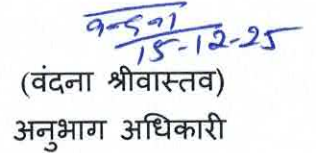 वन्दना
15-12-25
(वंदना श्रीवास्तव)
अनुभाग अधिकारी